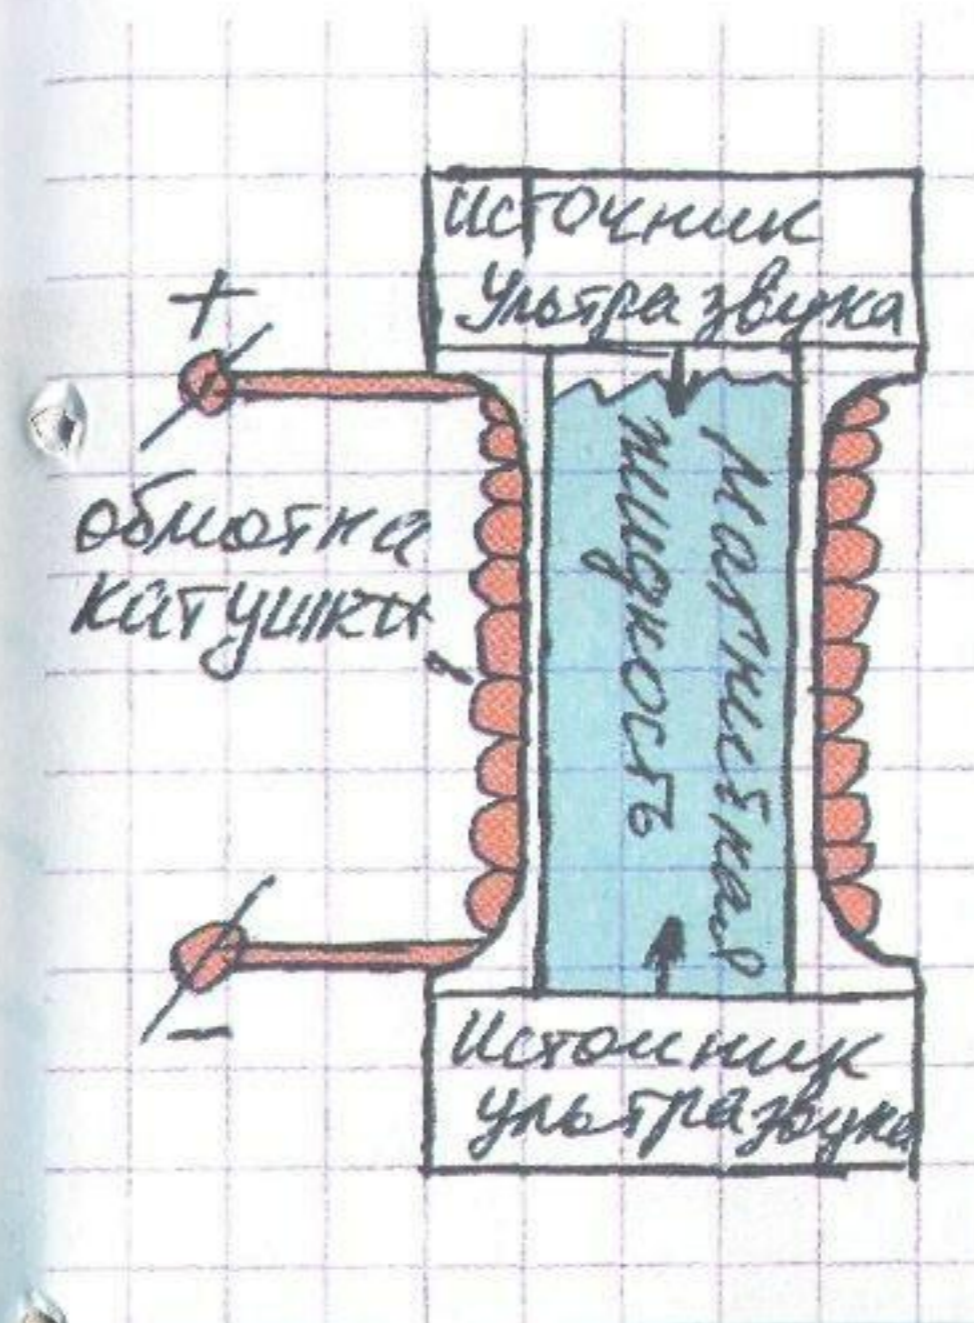 Источник
Ультразвука
+
обмотка
катушки
Магнитная
жидкость
−
Источник
ультразвука